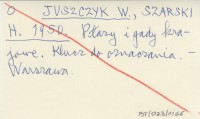 O JUSZCZYK W., SZARSKI
H. 1950. Płazy i gady kra-
jowe. Klucz do oznaczania. –
Warszawa.